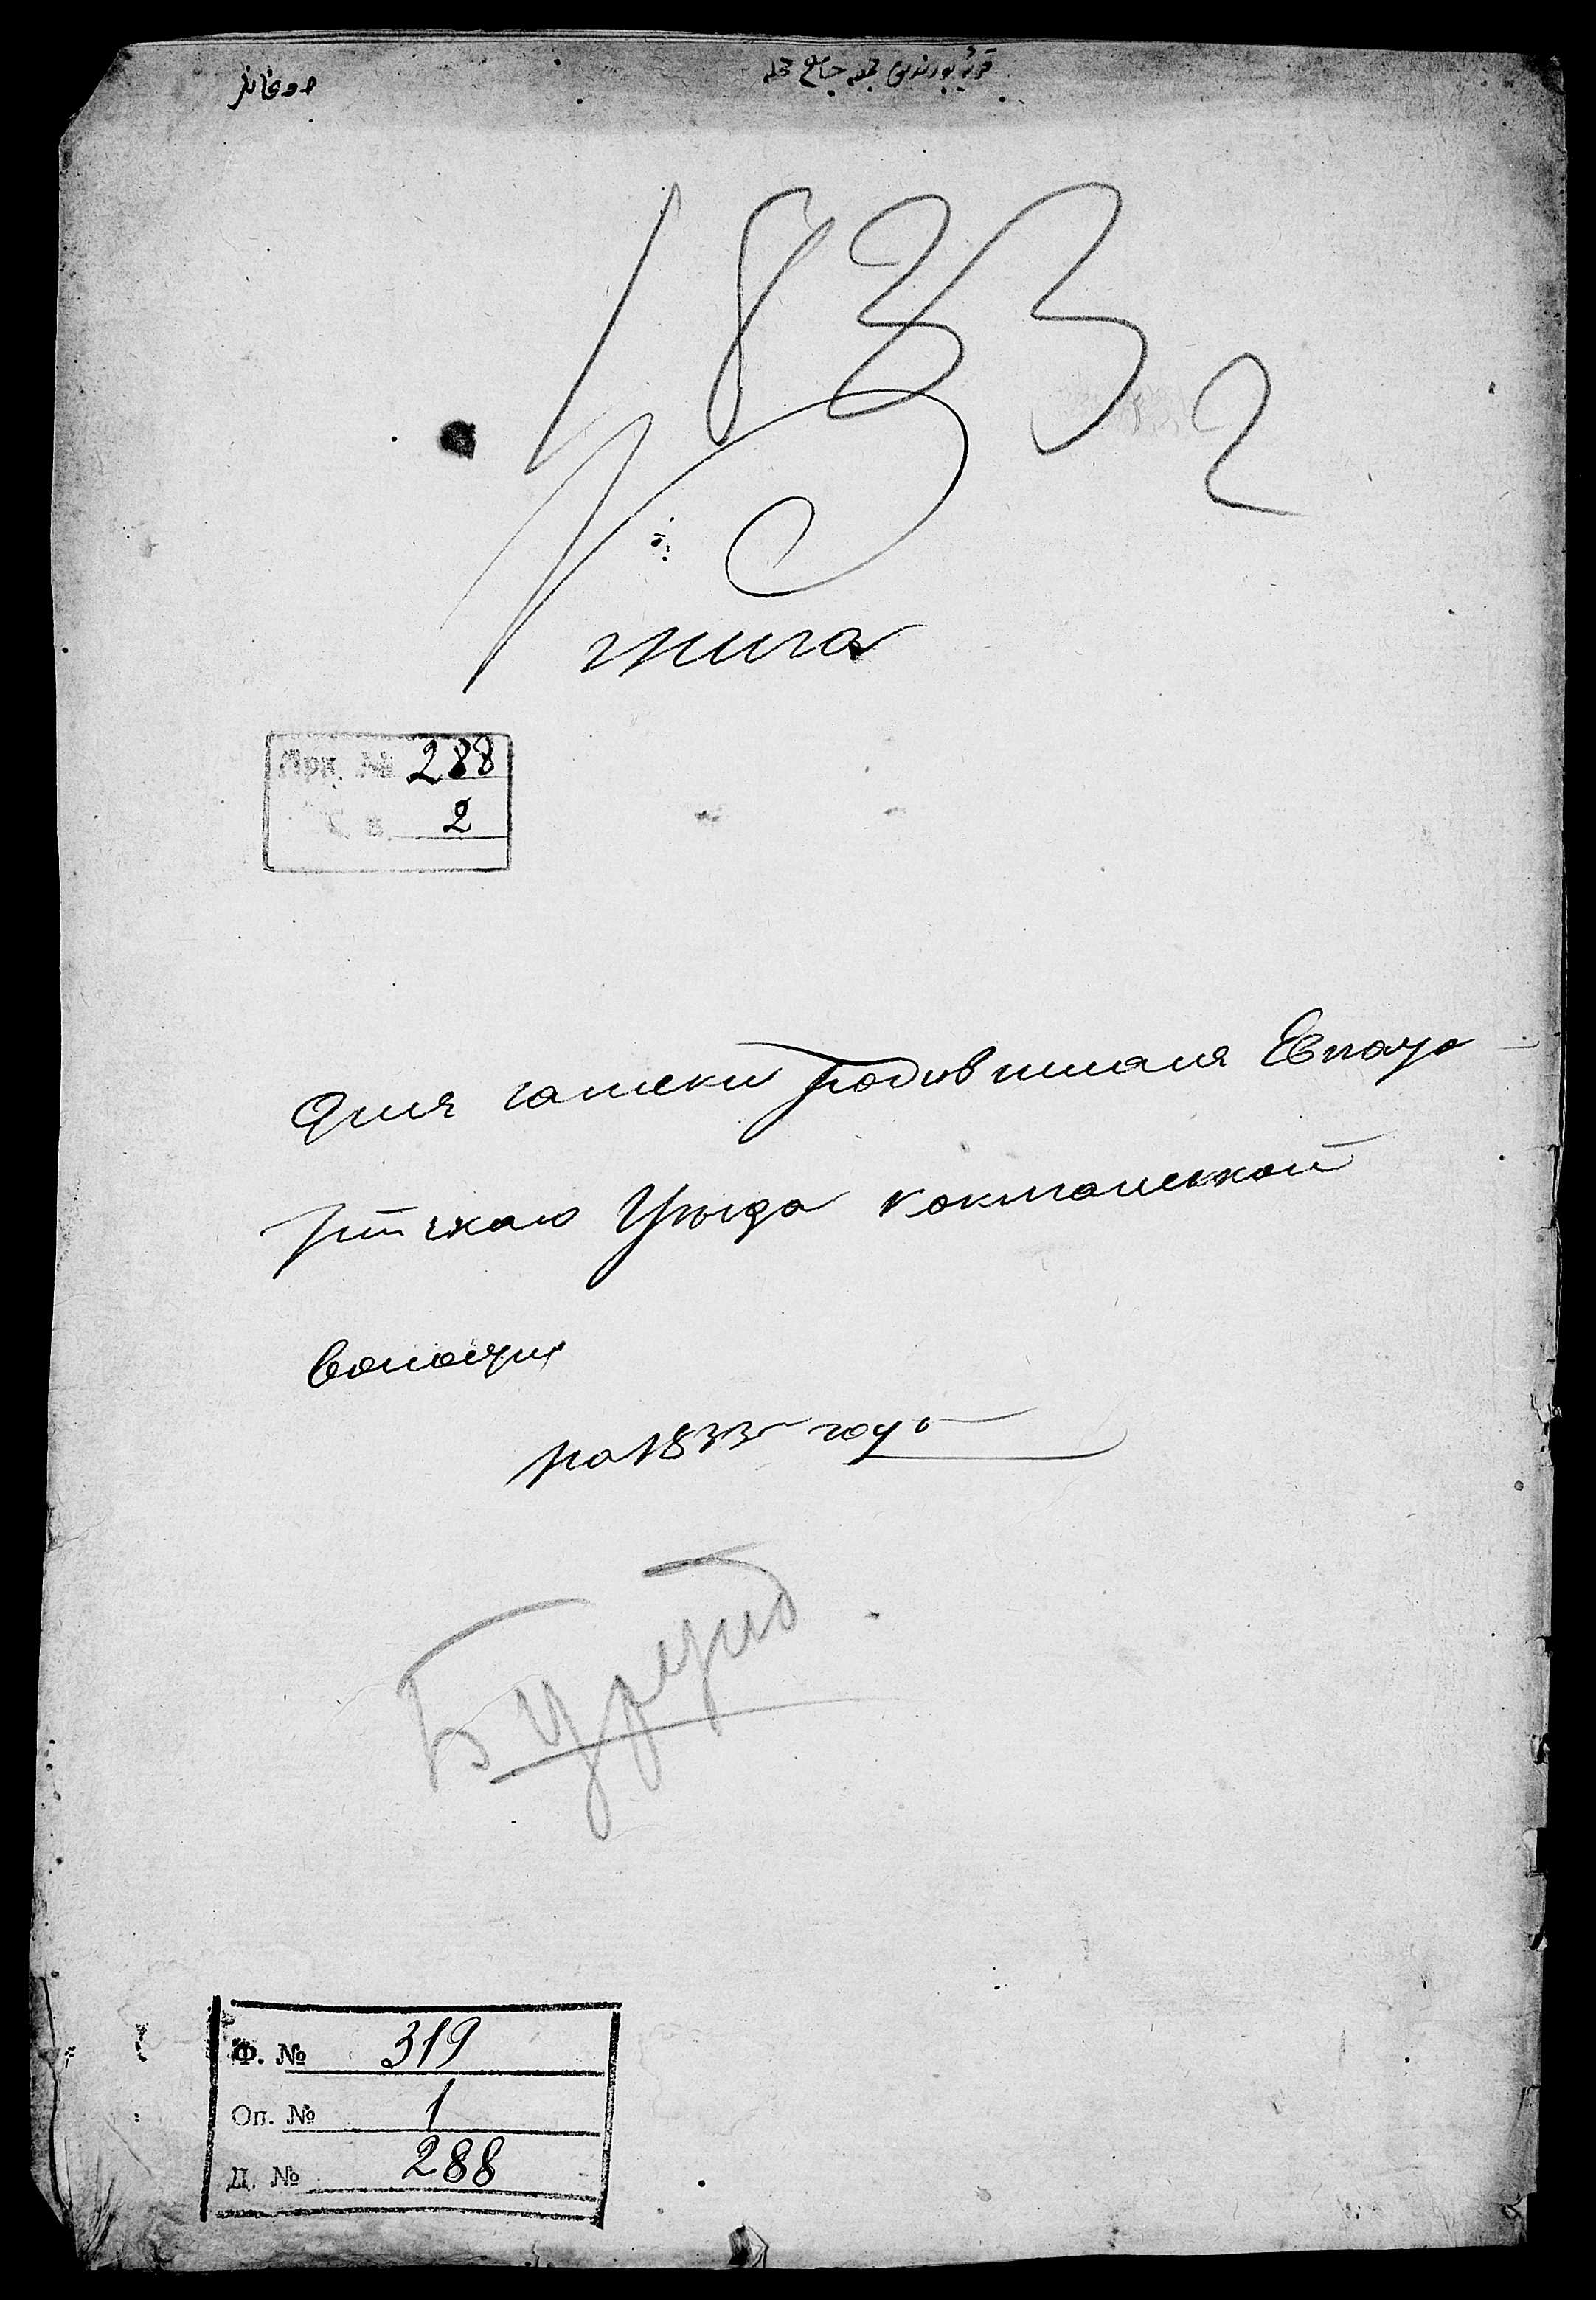 1833 г
Книга
Арх. № 288
Св. 2
Для записки родившихся Евпато-
рійскаго Уѣзда кокташской
волости
на 1833 годъ
Ф. № 319
Оп. № 1
Д. № 288